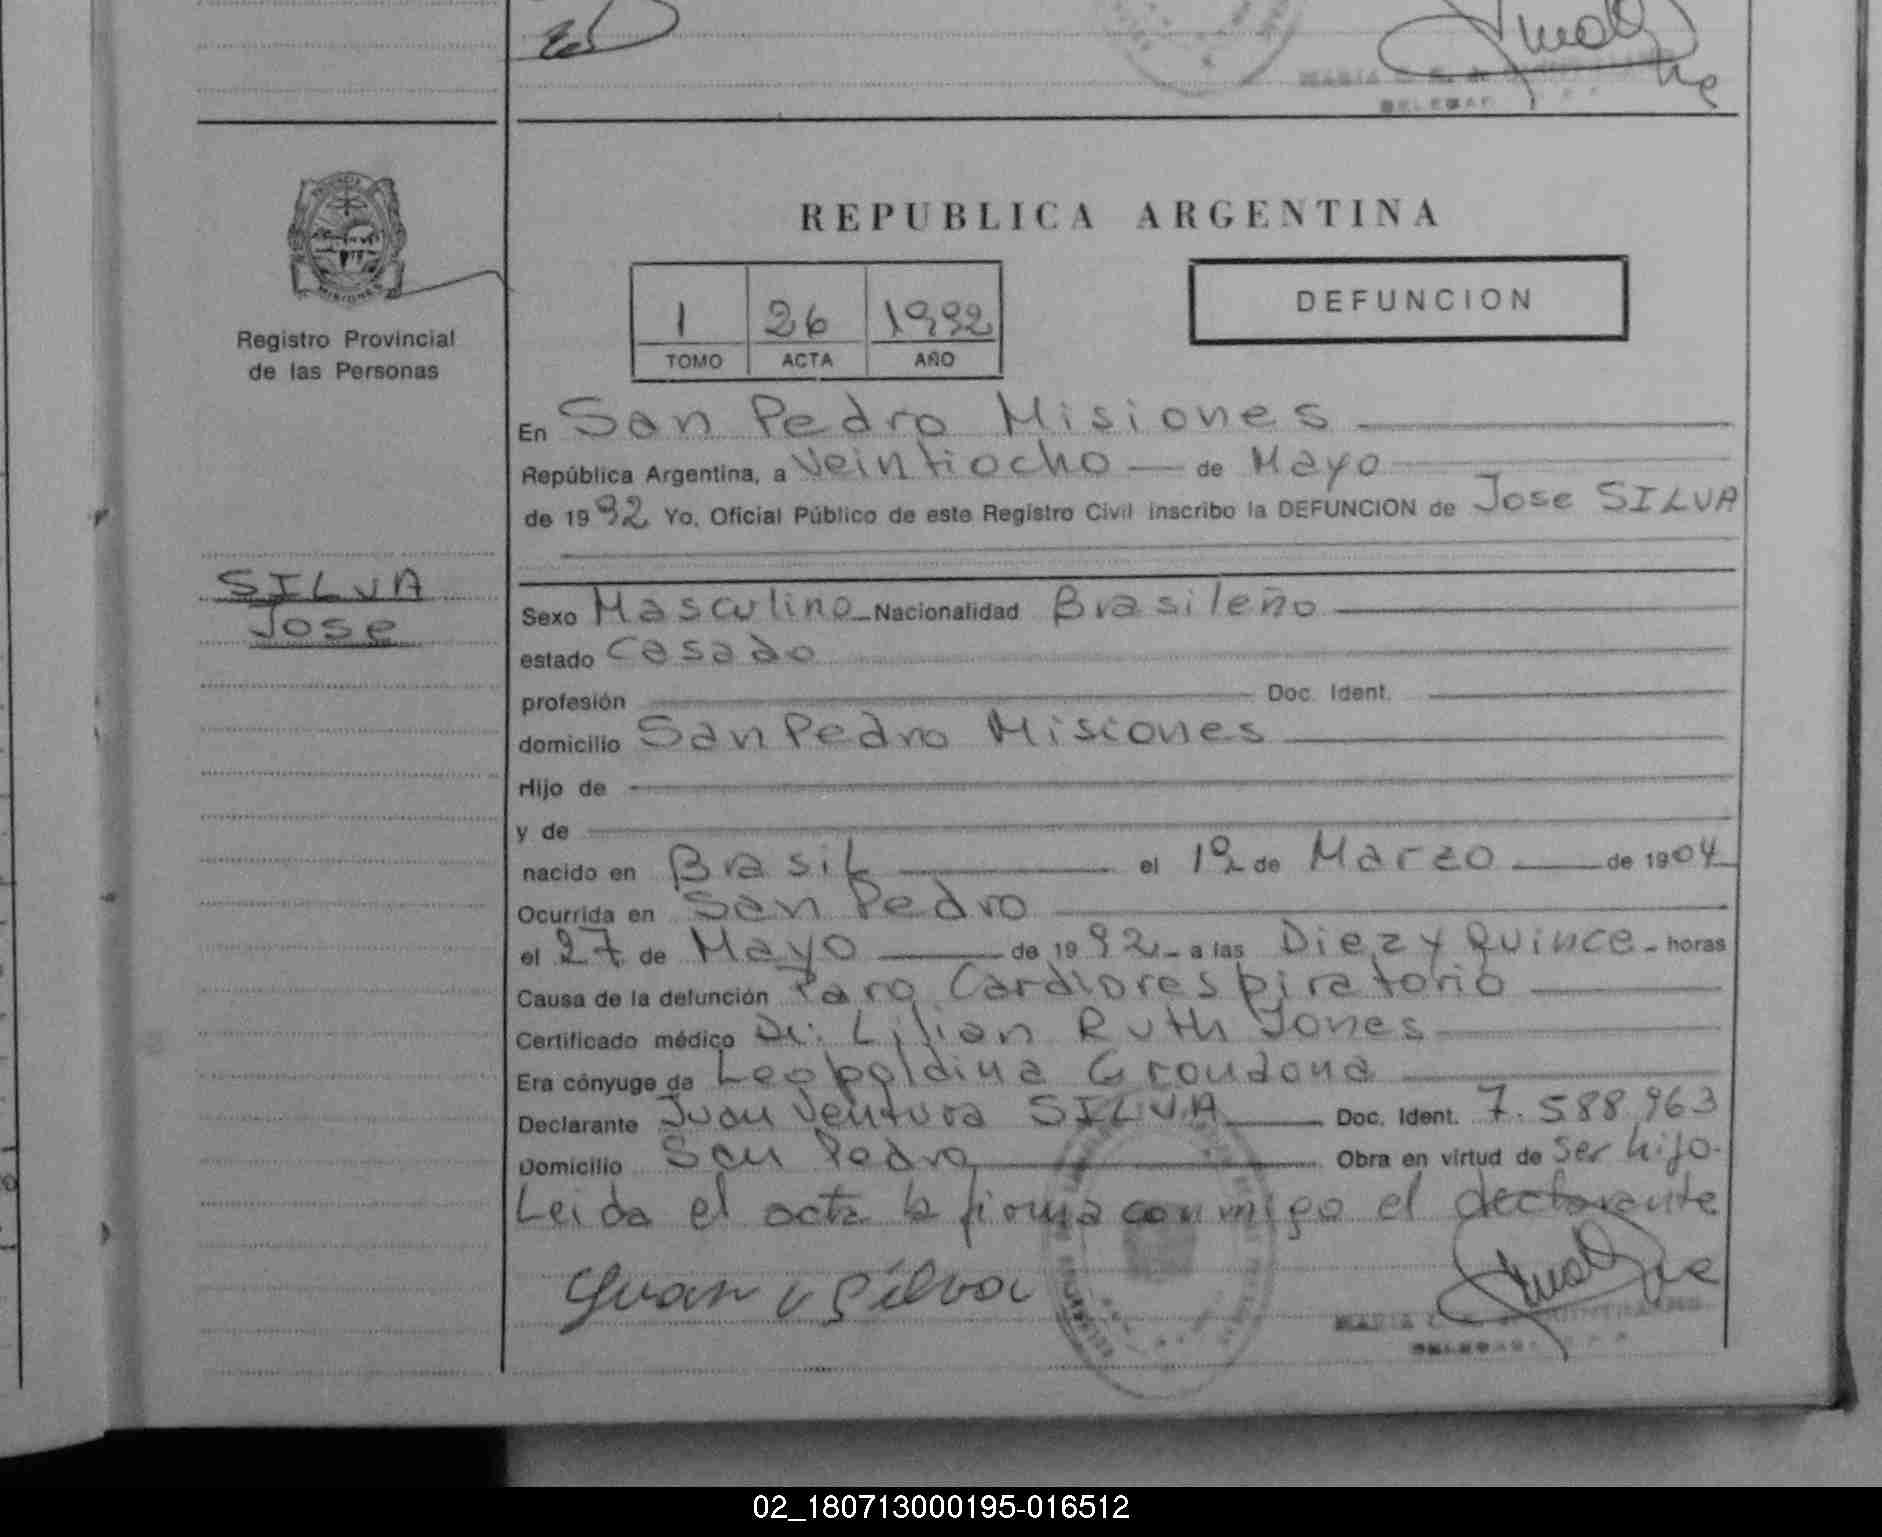 REPUBLICA ARGENTINA
1 26 1992
TOMO ACTA AÑO
DEFUNCION
PROVINCIA
MISIONES
Registro Provincial
de las Personas
SILVA
Jose
En San Pedro Misiones
República Argentina, a Veintiocho de Mayo
de 1992 Yo, Oficial Público de este Registro Civil inscribo la DEFUNCION de Jose SILVA
Sexo Masculino Nacionalidad Brasileño
estado Casado
profesión Doc. Ident.
domicilio San Pedro Misiones
Hijo de
y de
nacido en Brasil el 1º de Marzo de 1904
Ocurrida en San Pedro
el 27 de Mayo de 1992 a las Diez y Quince horas
Causa de la defunción Paro Cardiorespiratorio
Certificado médico Dr: Lilian Ruth Jones
Era cónyuge de Leopoldina Grondona
Declarante Juan Ventura SILVA Doc. Ident. 7.588.963
Domicilio San Pedro Obra en virtud de Ser hijo.
Leida el acta la firma conmigo el declarante
Juan V Silva
MARIA
02_180713000195-016512